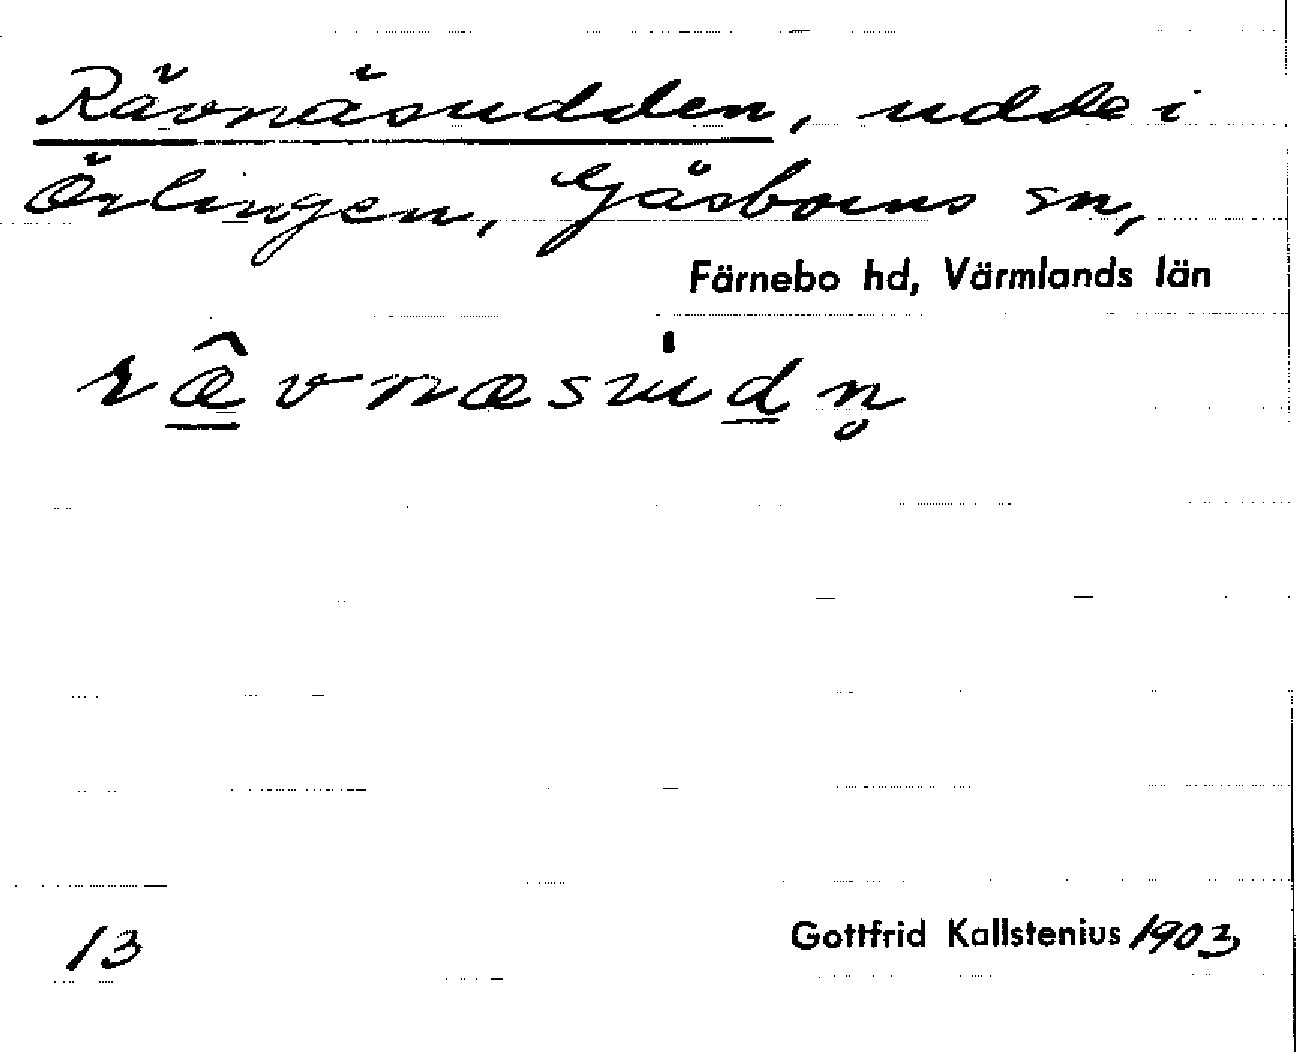 Rävnäsudden, udde i
Örlingen, Gåsborns sn,
Färnebo hd, Värmlands län
ræ̂vnæsudn̥
13
Gottfrid Kallstenius 1903